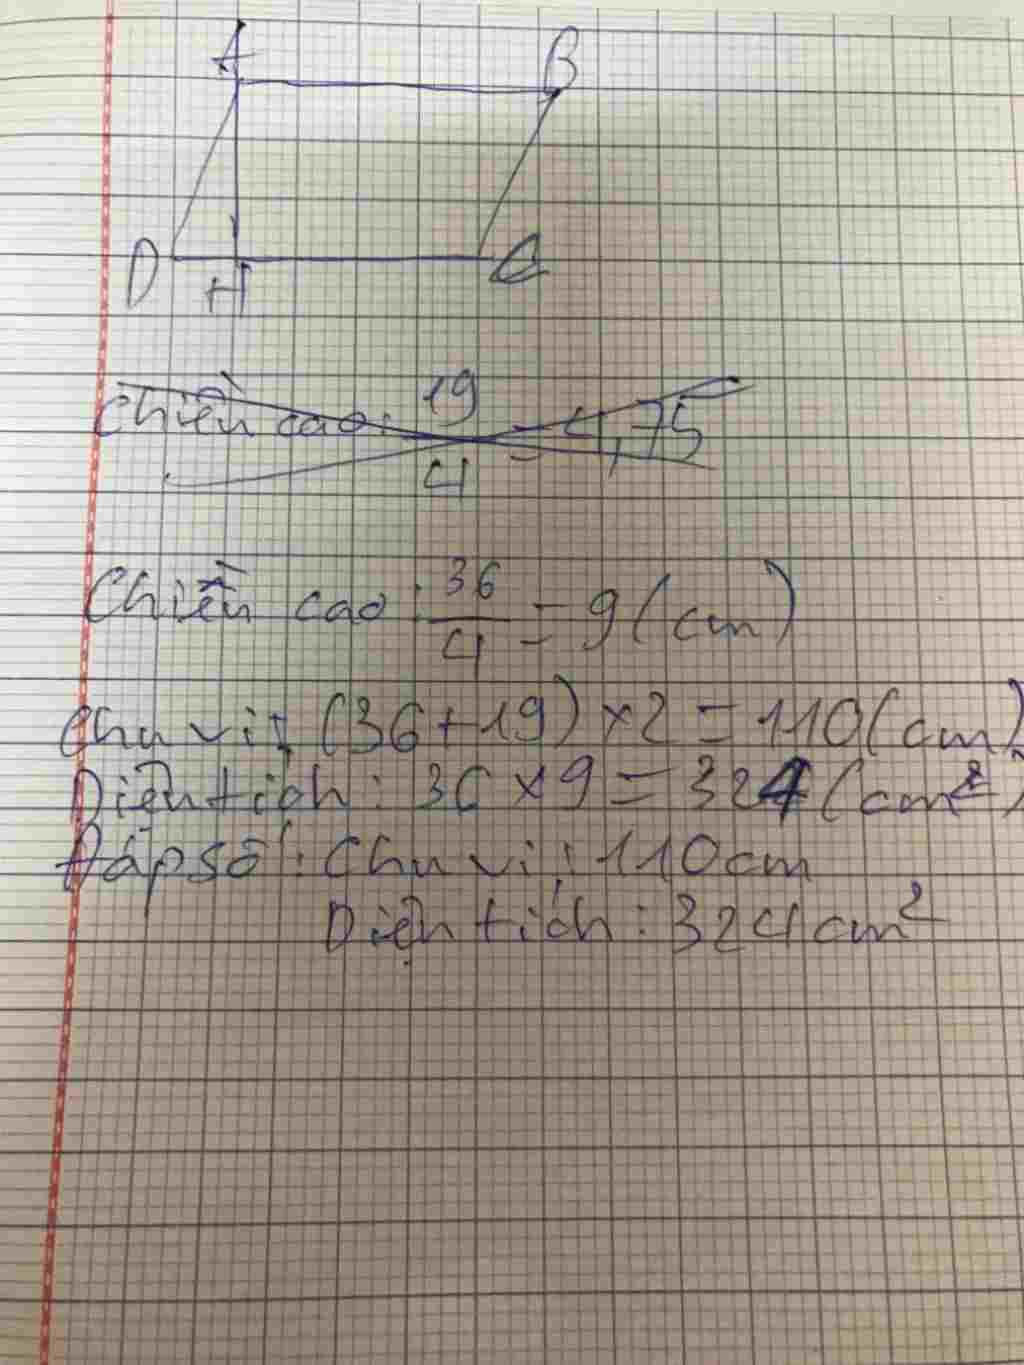 A B
D H C
Chiều cao: 19/4 = 4,75
Chiều cao: 36/4 = 9 (cm)
Chu vi: (36+19) × 2 = 110 (cm)
Diện tích: 36 × 9 = 324 (cm²)
Đáp số: Chu vi: 110 cm
Diện tích: 324 cm²